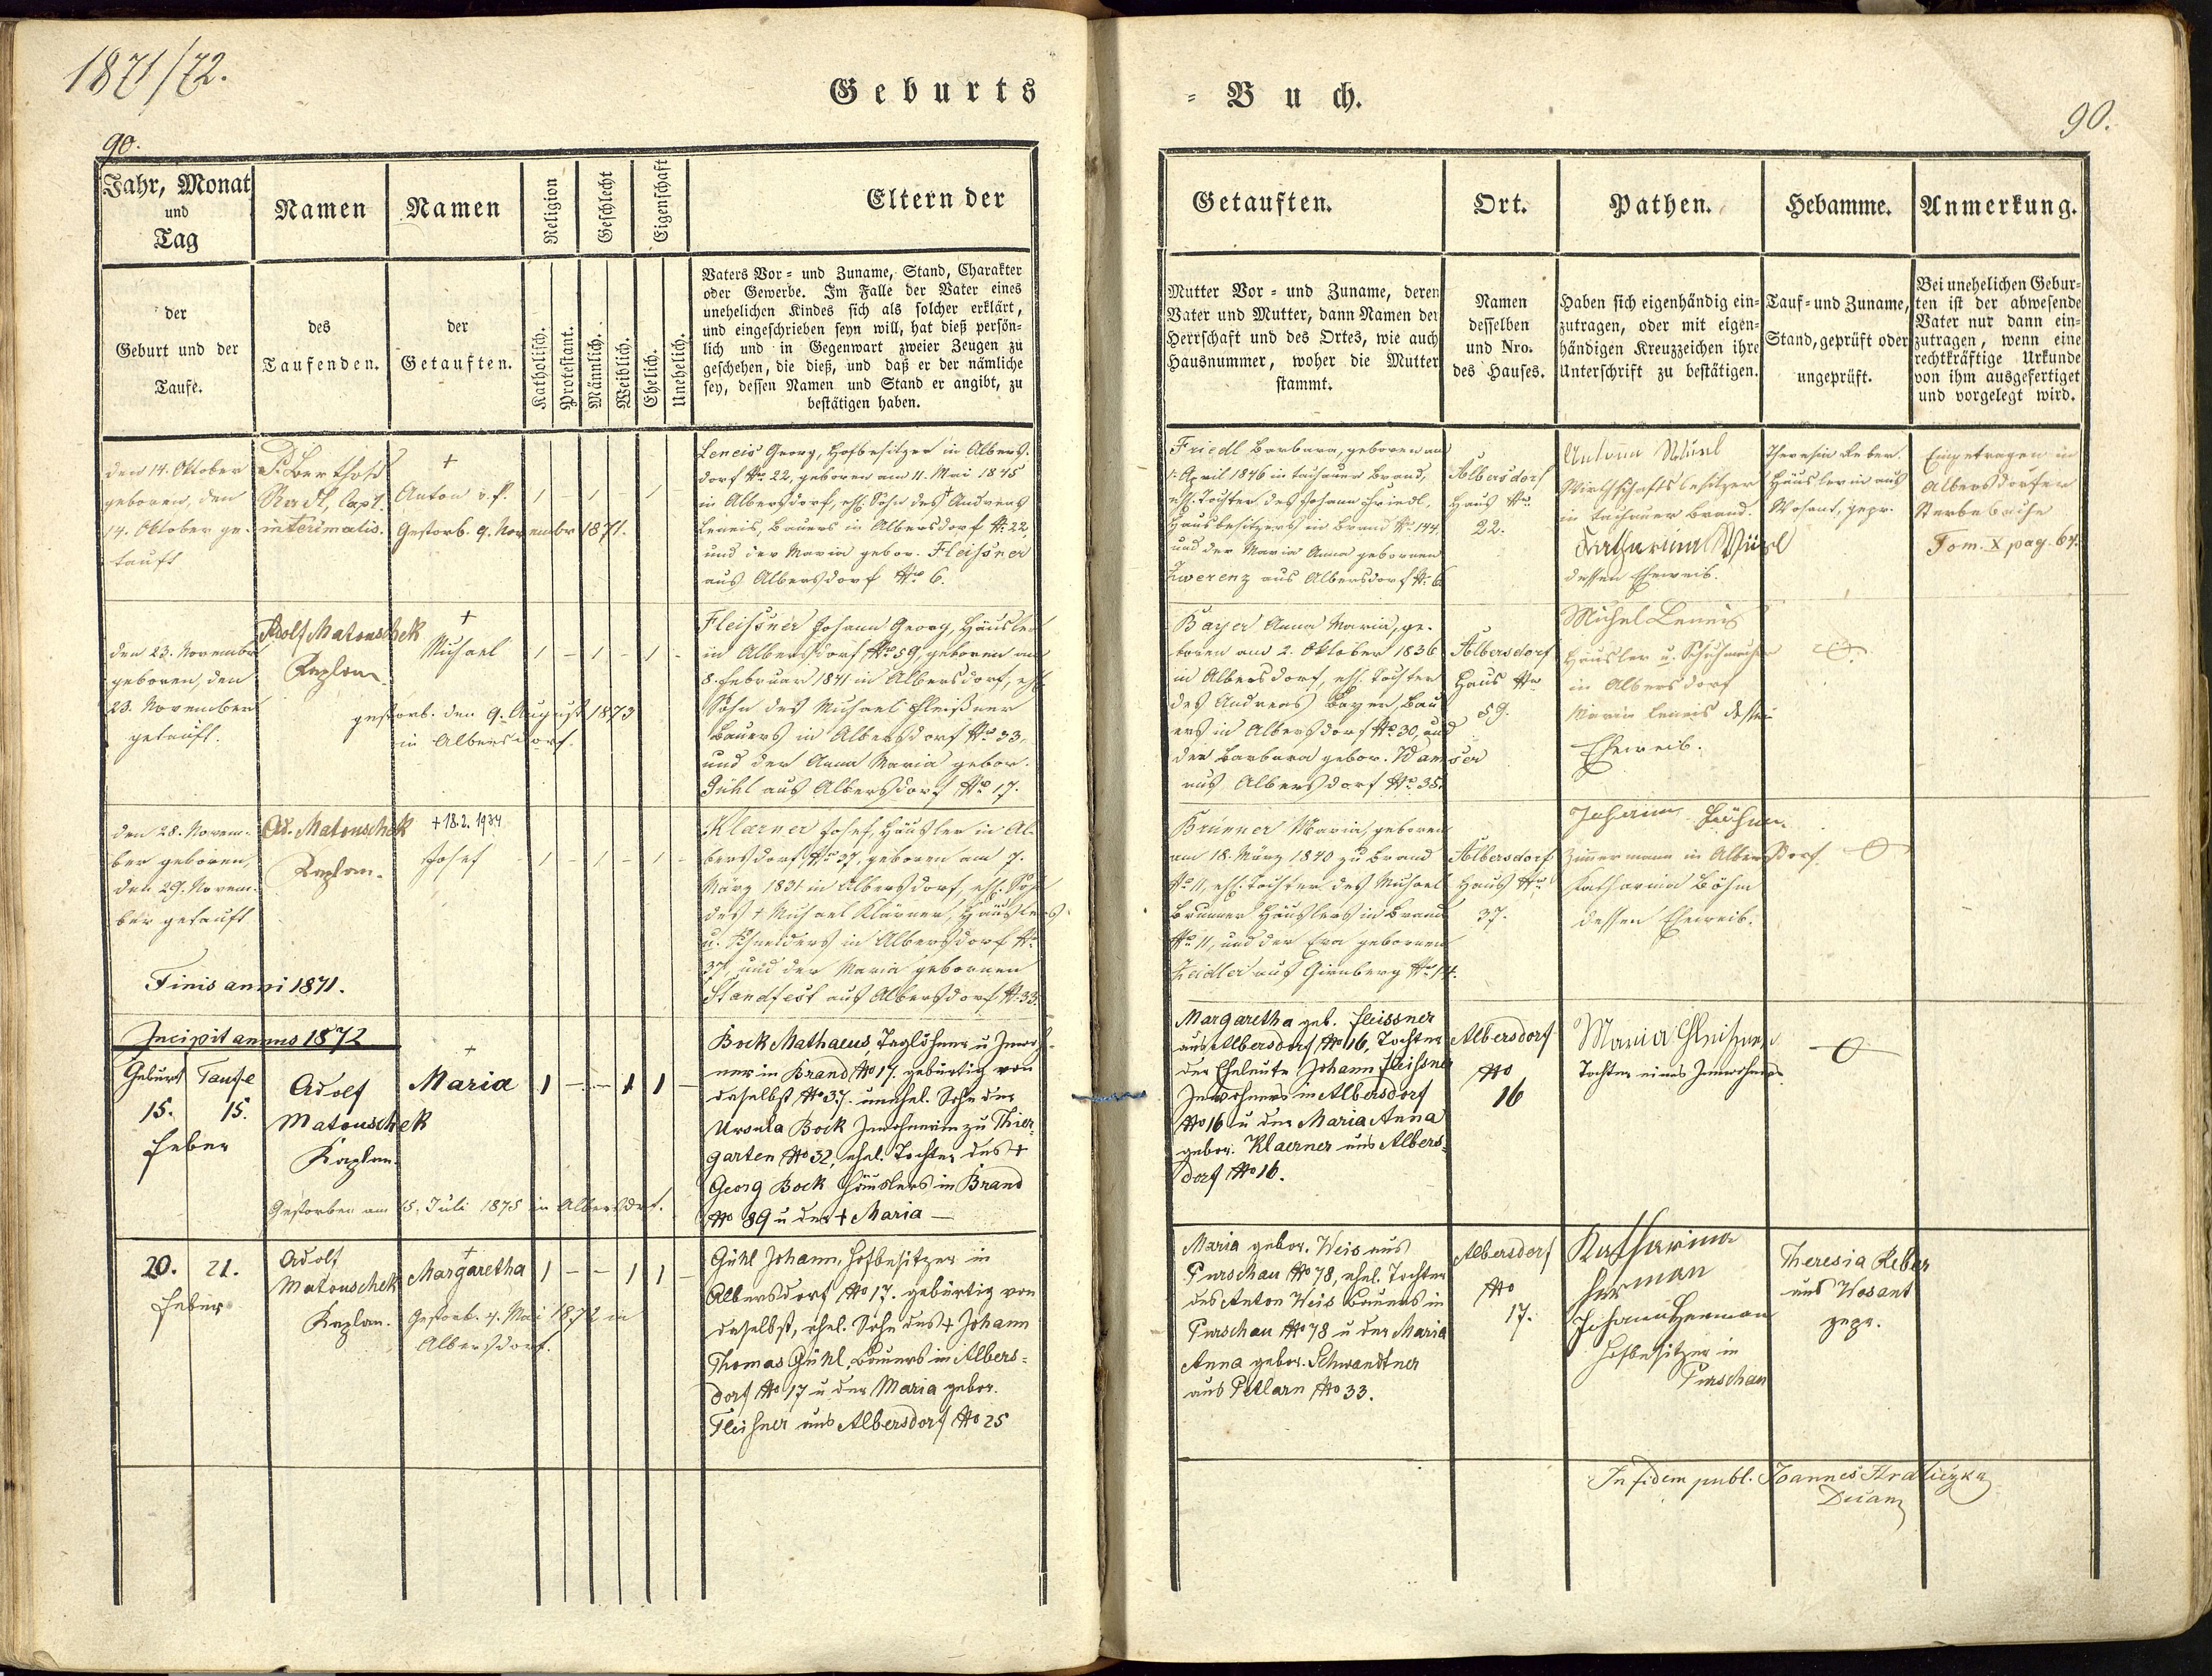 1871/72.
Geburts
= Buch.
90.
90.
Jahr, Monat
und
Tag
Namen
Namen
Religion
Geschlecht
Eigenschaft
Eltern der
Getauften.
Ort.
Pathen.
Hebamme.
Anmerkung.
der
Geburt und der
Taufe.
des
Taufenden.
der
Getauften.
Katholisch.
Protestant.
Männlich.
Weiblich.
Ehelich.
Unehelich.
Vaters Vor- und Zuname, Stand, Charakter
oder Gewerbe. Im Falle der Vater eines
unehelichen Kindes sich als solcher erklärt,
und eingeschrieben seyn will, hat dieß persön=
lich und in Gegenwart zweier Zeugen zu
geschehen, die dieß, und daß er der nämliche
sey, dessen Namen und Stand er angibt, zu
bestätigen haben.
Mutter Vor- und Zuname, deren
Vater und Mutter, dann Namen der
Herrschaft und des Ortes, wie auch
Hausnummer, woher die Mutter
stammt.
Namen
desselben
und Nro.
des Hauses.
Haben sich eigenhändig ein=
zutragen, oder mit eigen=
händigen Kreuzzeichen ihre
Unterschrift zu bestätigen.
Tauf- und Zuname,
Stand, geprüft oder
ungeprüft.
Bei unehelichen Gebur=
ten ist der abwesende
Vater nur dann ein=
zutragen, wenn eine
rechtkräftige Urkunde
von ihm ausgefertiget
und vorgelegt wird.
den 14. Oktober
geboren, den
14. Oktober ge-
tauft
P. Berthold
Radl, Capl.
interimalis.
+
Anton
Gestorb. 9. November 1871.
1 - 1 - 1
Leneis Georg, Hofbesitzer in Albers-
dorf No 22, geboren am 11. Mai 1845
in Albersdorf, ehl. Sohn des + Andreas
Leneis, Bauers in Albersdorf N. 22,
und der Maria gebor. Fleissner
aus Albersdorf No 6.
Friedl Barbara, geboren am
April 1846 in tachauer Brand,
ehl. Tochter des Johann Friedl,
Hausbesitzers in Brand No 144,
und der Maria Anna gebornen
Zwerenz aus Albersdorf N. 6
Albersdorf
Haus Nr.
22.
Wirthschaftsbesitzer
in tachauer Brand.
Katharina
dessen Eheweib.
Theresia Reber
Häuslerin aus
Wosant, gepr.
Eingetragen in
Albersdorfer
Sterbebuche
Tom. X pag. 64.
den 23. November
geboren, den
23. November
getauft.
Adolf Matouschek
Kaplan
+
Michael
gestorb. den 9. August 1873
in Albersdorf.
1 - 1 - 1 -
Fleissner Johann Georg, Häusler
in Albersdorf No 59, geboren am
8. Februar 1841 in Albersdorf, ehl.
Sohn des Michael Fleißner
Bauers in Albersdorf No 33,
und der Anna Maria gebor.
Gühl aus Albersdorf No 17.
Bayer Anna Maria, ge-
boren am 2. Oktober 1836
in Albersdorf, ehl. Tochter
des Andreas Bayer, Bau
ers in Albersdorf No 30, und
der Barbara gebor. Wamser
aus Albersdorf No 35.
Albersdorf
Haus Nr
59.
Michel Leneis
Häusler u. Schuhmacher
in Albersdorf
Maria Leneis dessen
Eheweib.
den 28. Novem-
ber geboren,
den 29. Novem-
ber getauft
Ad. Matouschek
Kaplan.
+ 18.2. 1934
Josef
1 - 1 - 1 -
Klarner Josef, Häusler in Al-
bersdorf No 37, geboren am 7.
März 1831 in Albersdorf, ehl. Sohn
des + Michael Klärner, Häuslers
u. Schneiders in Albersdorf N.
37, und der Maria gebornen
Standfest aus Albersdorf N. 33.
Brunner Maria, geboren
am 18. März 1840 zu Brand
No 11, ehl. Tochter des Michael
Brunner Häuslers in Brand
No 11, und der Eva gebornen
Zeidler aus Girnberg No 14.
Albersdorf
Haus Nr.
37.
Johann
Zimmermann in Albersdorf.
Katharina Böhm
dessen Eheweib.
Finis anni 1871.
Incipit annus 1872
Geburt Taufe
15. 15.
Feber
Adolf
Matouschek
Kaplan.
+
Maria
1 - - 1 1 -
Gestorben am 15. Juli 1875 in Albersdorf.
Bock Mathaeus, Taglöhner u Inwoh-
ner in Brand No 17. gebürtig von
daselbst No 37. unehel. Sohn der
Ursula Bock Inwohnerin zu Thier-
garten No 32, ehel. Tochter des +
Georg Bock Häuslers in Brand
No 89 u der + Maria —
Margaretha geb. Fleissner
aus Albersdorf No 16, Tochter
der Eheleute Johann Fleissner
Inwohners in Albersdorf
No 16 u der Maria Anna
gebor. Klaerner aus Albers-
dorf No 16.
Albersdorf
No
16
Maria Fleissner
Tochter eines Inwohners
20. 21.
Feber
Adolf
Matouschek
Kaplan.
+
Margaretha
Gestorb. 4. Mai 1872 in
Albersdorf.
1 - - 1 1 -
Gühl Johann, Hofbesitzer in
Albersdorf No 17. gebürtig von
daselbst, ehel. Sohn des + Johann
Thomas Gühl, Bauers in Albers=
dorf No 17 u der Maria gebor.
Fleissner aus Albersdorf No 25
Maria gebor. Weis aus
Purschau No 78, ehel. Tochter
des Anton Weis Bauers in
Purschau No 78 u der Maria
Anna gebor. Schwandtner
aus Petlarn No 33.
Albersdorf
No
17.
Katharina
Herman
Johann Herman
Hofbesitzer in
Purschau
Theresia Reber
aus Wosant
gepr.
In fidem publ. Joannes Hraliczka
Decan